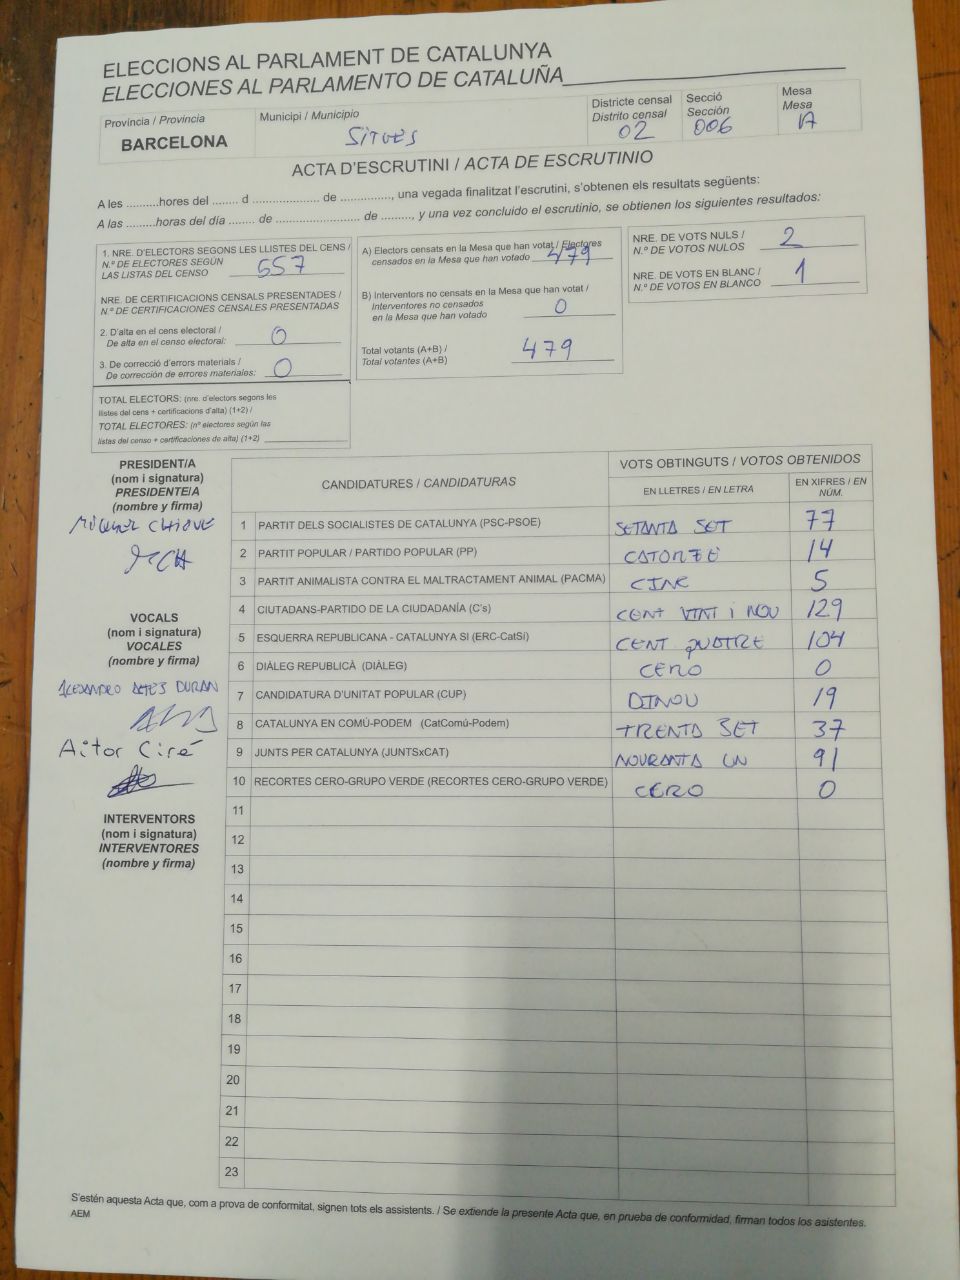 ELECCIONS AL PARLAMENT DE CATALUNYA
ELECCIONES AL PARLAMENTO DE CATALUÑA
Província / Provincia
BARCELONA
Municipi / Municipio
SITGES
Districte censal
Distrito censal
02
Secció
Sección
006
Mesa
Mesa
A
ACTA D'ESCRUTINI / ACTA DE ESCRUTINIO
A les ..........hores del ........ d .................... de ..............., una vegada finalitzat l'escrutini, s'obtenen els resultats següents:
A las .........horas del día ........ de ......................... de .........., y una vez concluido el escrutinio, se obtienen los siguientes resultados:
1. NRE. D'ELECTORS SEGONS LES LLISTES DEL CENS /
N.º DE ELECTORES SEGÚN
LAS LISTAS DEL CENSO 557
NRE. DE CERTIFICACIONS CENSALS PRESENTADES /
N.º DE CERTIFICACIONES CENSALES PRESENTADAS
2. D'alta en el cens electoral /
De alta en el censo electoral: 0
3. De correcció d'errors materials /
De corrección de errores materiales: 0
TOTAL ELECTORS: (nre. d'electors segons les
llistes del cens + certificacions d'alta) (1+2) /
TOTAL ELECTORES: (nº electores según las
listas del censo + certificaciones de alta) (1+2)
A) Electors censats en la Mesa que han votat / Electores
censados en la Mesa que han votado 479
B) Interventors no censats en la Mesa que han votat /
Interventores no censados
en la Mesa que han votado 0
Total votants (A+B) /
Total votantes (A+B) 479
NRE. DE VOTS NULS /
N.º DE VOTOS NULOS 2
NRE. DE VOTS EN BLANC /
N.º DE VOTOS EN BLANCO 1
PRESIDENT/A
(nom i signatura)
PRESIDENTE/A
(nombre y firma)
VOCALS
(nom i signatura)
VOCALES
(nombre y firma)
Aitor Ciré
INTERVENTORS
(nom i signatura)
INTERVENTORES
(nombre y firma)
CANDIDATURES / CANDIDATURAS
VOTS OBTINGUTS / VOTOS OBTENIDOS
EN LLETRES / EN LETRA
EN XIFRES / EN
NÚM.
1 PARTIT DELS SOCIALISTES DE CATALUNYA (PSC-PSOE) SETANTA SET 77
2 PARTIT POPULAR / PARTIDO POPULAR (PP) CATORZE 14
3 PARTIT ANIMALISTA CONTRA EL MALTRACTAMENT ANIMAL (PACMA) CINC 5
4 CIUTADANS-PARTIDO DE LA CIUDADANÍA (C's) CENT VINT I NOU 129
5 ESQUERRA REPUBLICANA - CATALUNYA SI (ERC-CatSí) CENT QUATRE 104
6 DIÀLEG REPUBLICÀ (DIÀLEG) CERO 0
7 CANDIDATURA D'UNITAT POPULAR (CUP) DINOU 19
8 CATALUNYA EN COMÚ-PODEM (CatComú-Podem) TRENTA SET 37
9 JUNTS PER CATALUNYA (JUNTSxCAT) NOURANTA UN 91
10 RECORTES CERO-GRUPO VERDE (RECORTES CERO-GRUPO VERDE) CERO 0
11
12
13
14
15
16
17
18
19
20
21
22
23
S'estén aquesta Acta que, com a prova de conformitat, signen tots els assistents. / Se extiende la presente Acta que, en prueba de conformidad, firman todos los asistentes.
AEM